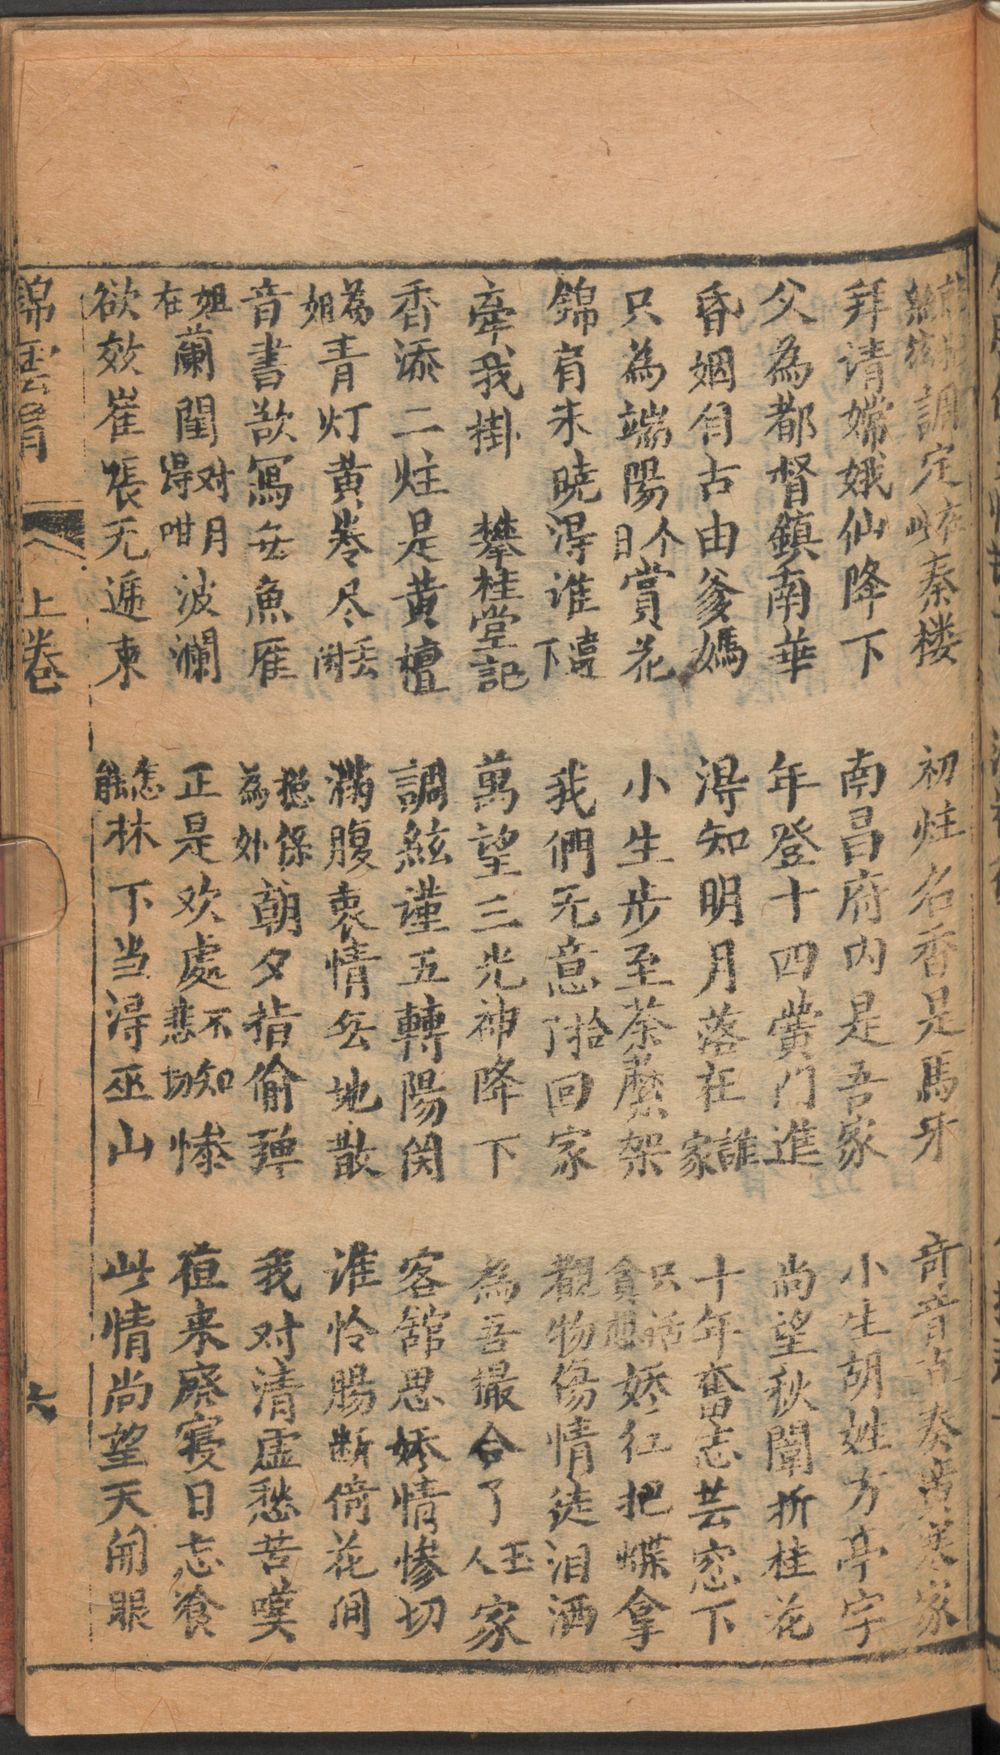 調定在此秦楼　初炷名香是馬牙　奇音直奏廣寒家
拜请嫦娥仙降下　南昌府内是吾家　小生胡姓方亭字
父為都督鎮南華　年登十四黉门進　尚望秋闈折桂花
昏姻自古由爹媽　淂知明月落在誰家　十年奮志芸窓下
只為端陽今日賞花　小生步至荼蘼架　只話貪想娇红把蝶拿
錦肓未曉淂谁下　我們无意拾了回家　觀物傷情徒泪洒
牽我掛　攀桂堂記　萬望三光神降下　為吾撮合了玉人家
香添二炷是黄檀　調絃谨五轉陽関　客舘思娇情惨切
為姐青灯黄卷尽丢閑　满腹衷情无地散　谁怜腸断倚花间
音書欲寫无魚雁　総係為外朝夕指偷弹　我对清虚愁苦嘆
姐在蘭閨对月淂咁波瀾　正是欢處不知悲切惨　值来廢寝日忘飧
欲效崔張无遞柬　怎能林下当淂巫山　此情尚望天開眼
錦雲肓　上卷　六